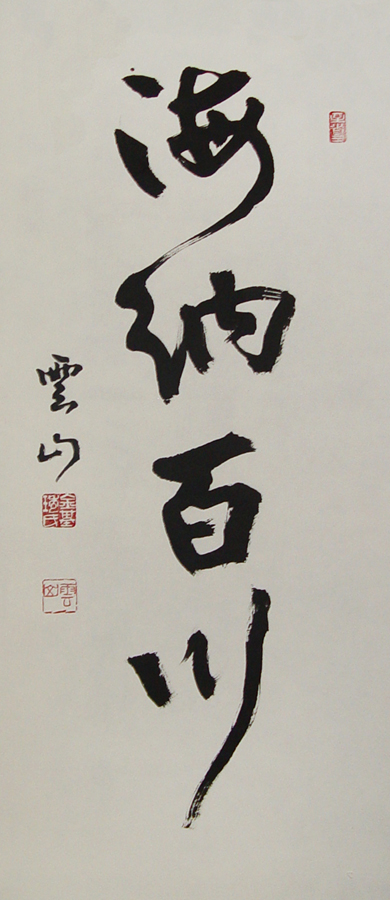 海納百川
雲山
雲